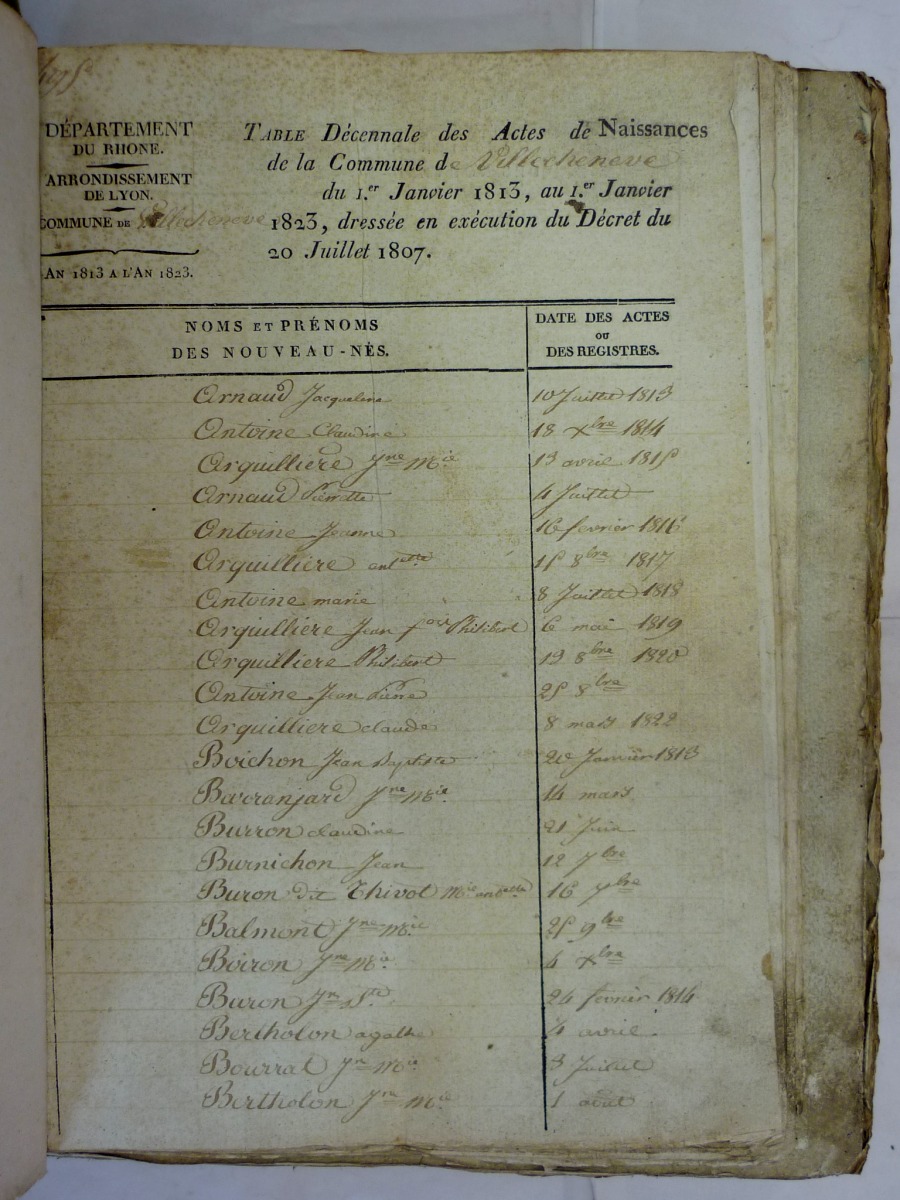 DÉPARTEMENT
DU RHONE.
ARRONDISSEMENT
DE LYON.
COMMUNE DE Villecheneve
AN 1813 A L'AN 1823.
TABLE Décennale des Actes de Naissances
de la Commune de Villecheneve
du 1.er Janvier 1813, au 1.er Janvier
1823, dressée en exécution du Décret du
20 Juillet 1807.
NOMS ET PRÉNOMS
DES NOUVEAU-NÈS.
DATE DES ACTES
OU
DES REGISTRES.
Arnaud Jacqueline 10 Juillet 1813
Antoine Claudine 18 Xbre 1814
Arquilliere Jne Mie 13 avril 1815
Arnaud Pierrette 4 Juillet
Antoine Jeanne 16 fevrier 1816
Arquilliere antette 15 8bre 1817
Antoine marie 8 Juillet 1818
Arquilliere Jean fois Philibert 6 mai 1819
Arquilliere Philibert 19 8bre 1820
Antoine Jean Pierre 25 8bre
Arquilliere claude 8 mars 1822
Boichon Jean Baptiste 20 Janvier 1813
Barranjard Jne Mie 14 mars
Burron claudine 21 Juin
Burnichon Jean 12 7bre
Buron dit Thivol Mie antette 16 7bre
Balmont Jne Mie 25 9bre
Boiron Jne Mie 4 Xbre
Buron Jn Bte 24 fevrier 1814
Bertholon agathe 4 avril
Bourrat Jn Mie 3 Juillet
Bertholon Jne Mie 1 aout